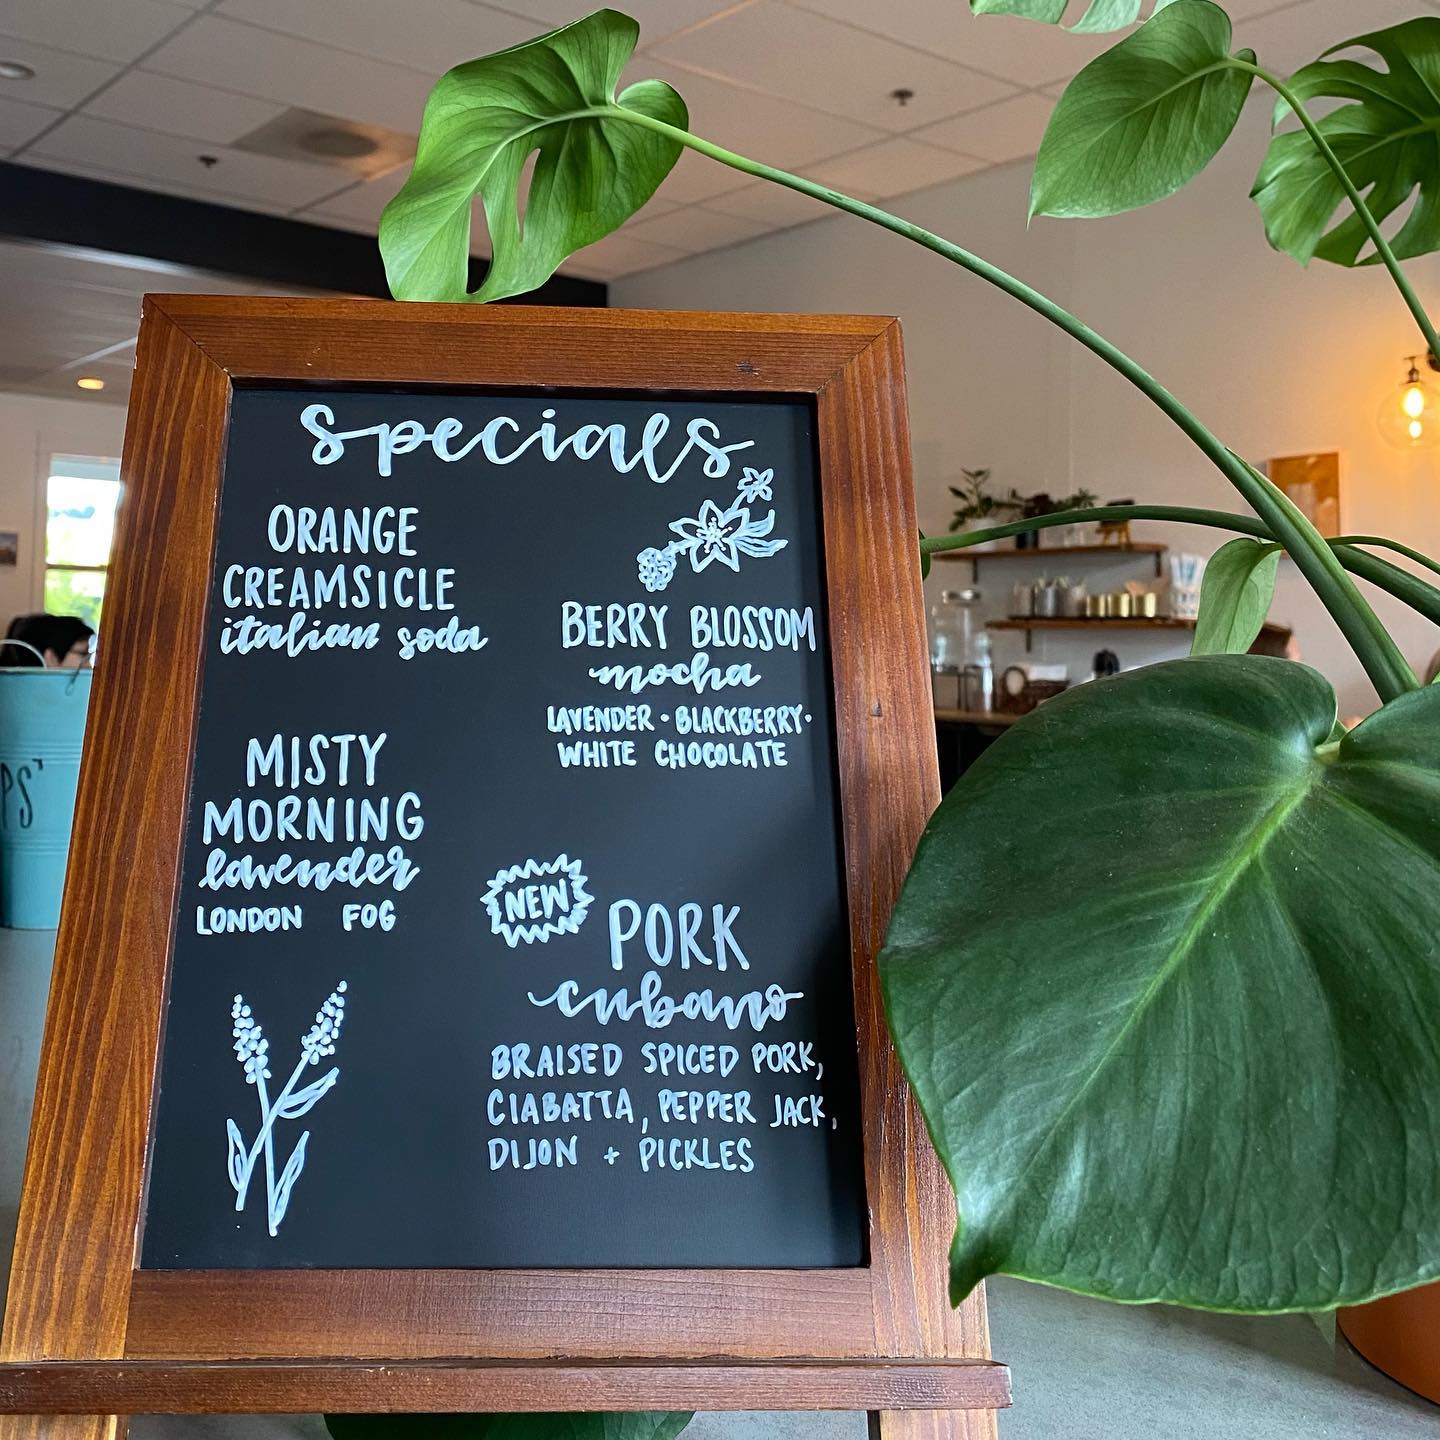 Specials
ORANGE
CREAMSICLE
italian soda
BERRY BLOSSOM
mocha
LAVENDER • BLACKBERRY •
WHITE CHOCOLATE
MISTY
MORNING
lavender
LONDON FOG
NEW
PORK
cubano
BRAISED SPICED PORK,
CIABATTA, PEPPER JACK,
DIJON + PICKLES